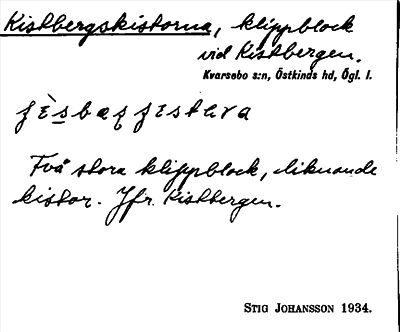 Kistbergskistorna, klippblock
vid Kistbergen.
Kvarsebo s:n, Östkinds hd, Ögl. l.
Två stora klippblock, liknande
kistor. Jfr. Kistbergen.
STIG JOHANSSON 1934.